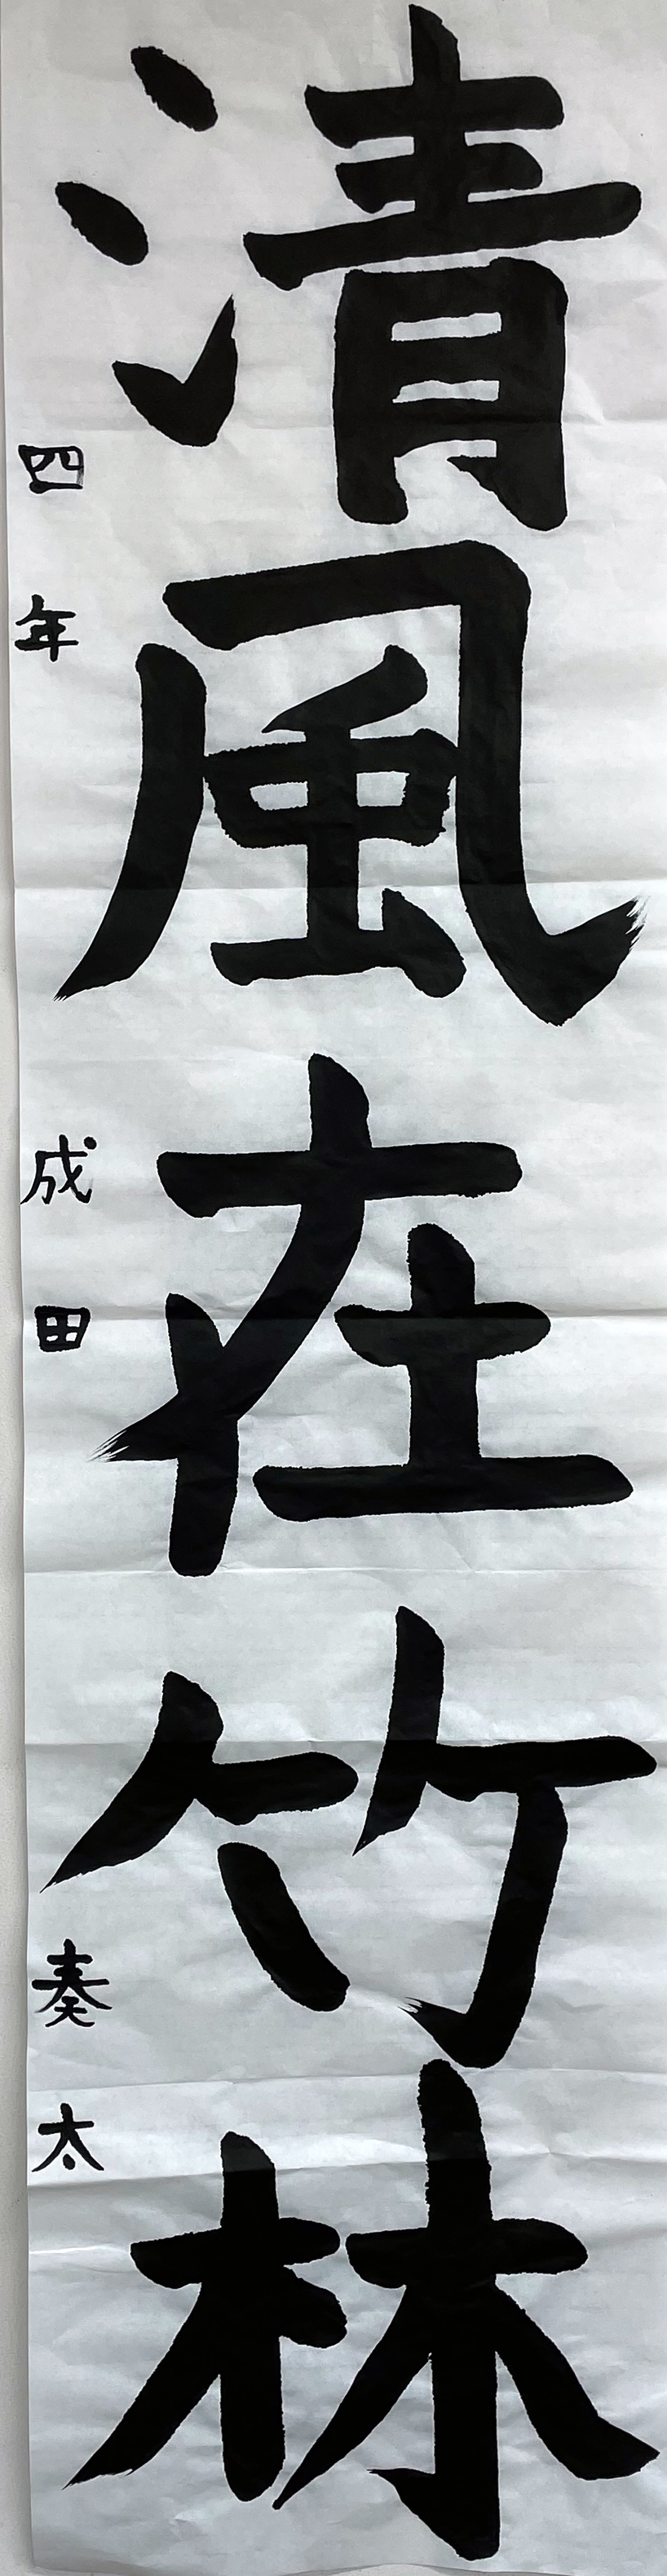 清風在竹林
四年 成田 奏太